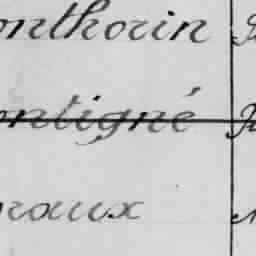 onthorin
ontigné
raux